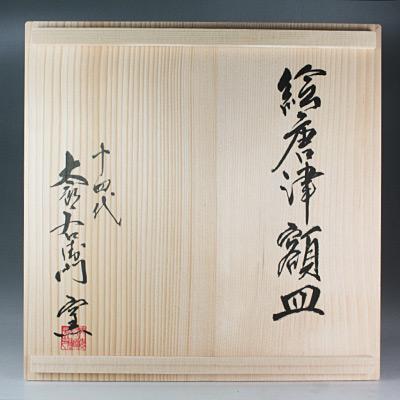 絵唐津額皿
十四代
太郎右衛門窯